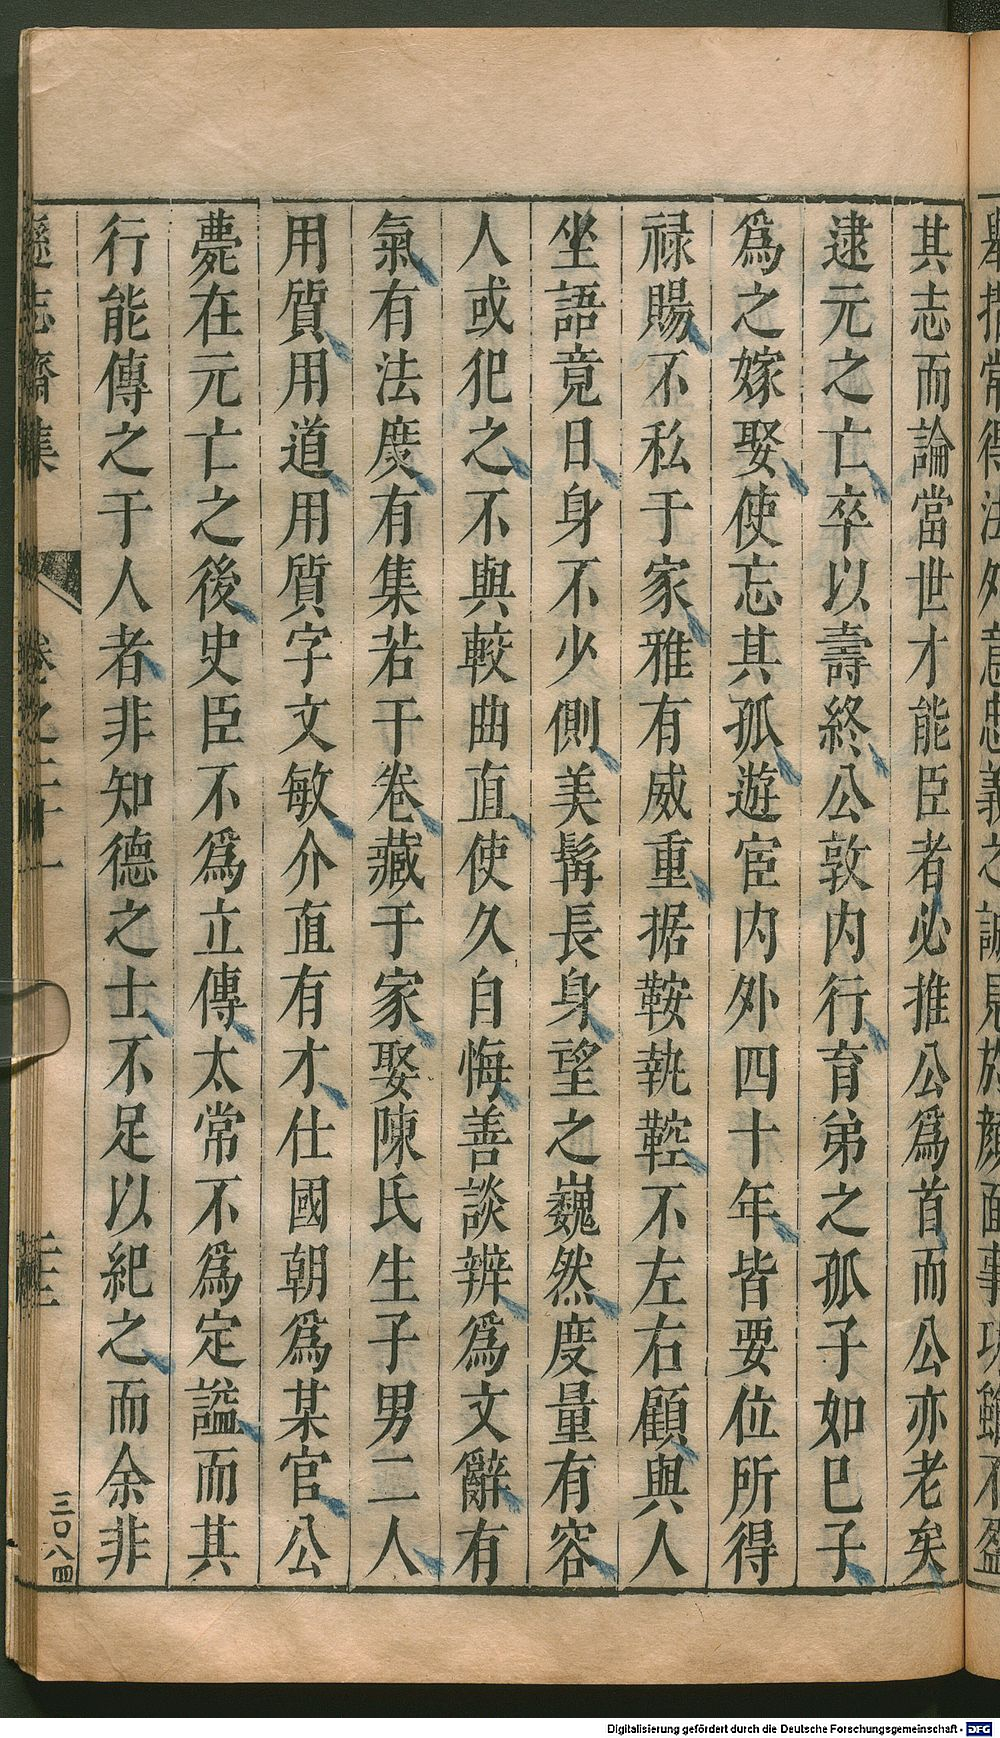 其志而論當世才能臣者必推公爲首而公亦老矣
逮元之亡卒以壽終公敦内行育弟之孤子如巳子
爲之嫁娶使忘其孤遊宦内外四十年皆要位所得
禄賜不私于家雅有威重据鞍執鞚不左右顧與人
坐語竟日身不少側美髯長身望之巍然度量有容
人或犯之不與較曲直使久自悔善談辨爲文辭有
氣有法度有集若干卷藏于家娶陳氏生子男二人
用質用道用質字文敏介直有才仕國朝爲某官公
薨在元亡之後史臣不爲立傳太常不爲定謚而其
行能傳之于人者非知德之士不足以紀之而余非
遜志齋集
卷之二十一
三〇八四
Digitalisierung gefördert durch die Deutsche Forschungsgemeinschaft - DFG